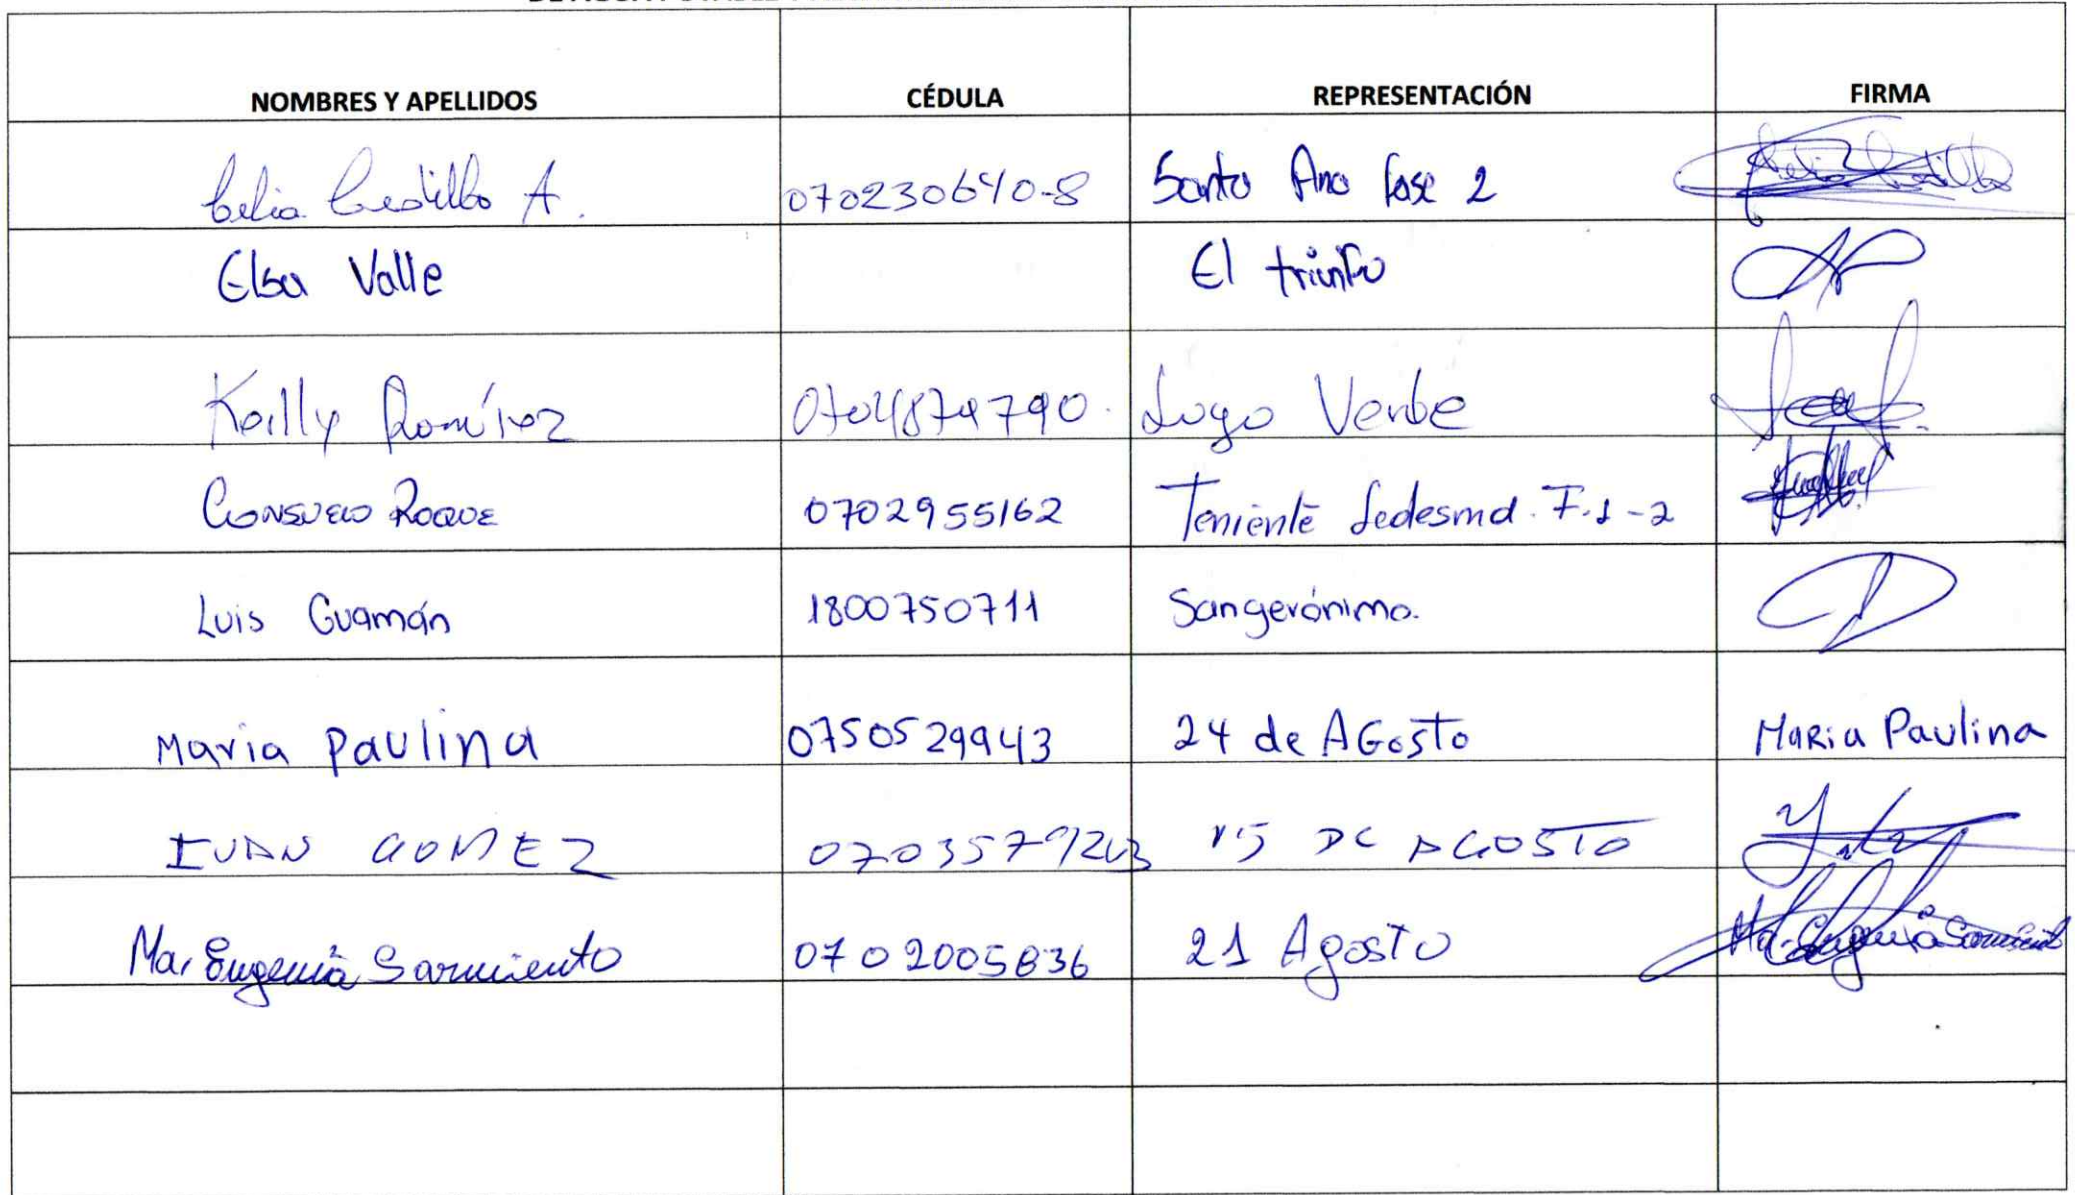 NOMBRES Y APELLIDOS CÉDULA REPRESENTACIÓN FIRMA
Celia Castillo A. 070230640-8 Santa Ana fase 2
Elsa Valle El triunfo
Keilly Ramírez Lugo Verde
Consuelo Roque 0702955162 Teniente Ledesma. F.1-2
Luis Guamán 1800750711 Sangerónimo.
Maria Paulina 0750529943 24 de AGosto Maria Paulina
IVAN GOMEZ 15 DE AGOSTO
Ma. Eugenia Sarmiento 0702005836 21 Agosto Ma. Eugenia Sarmiento